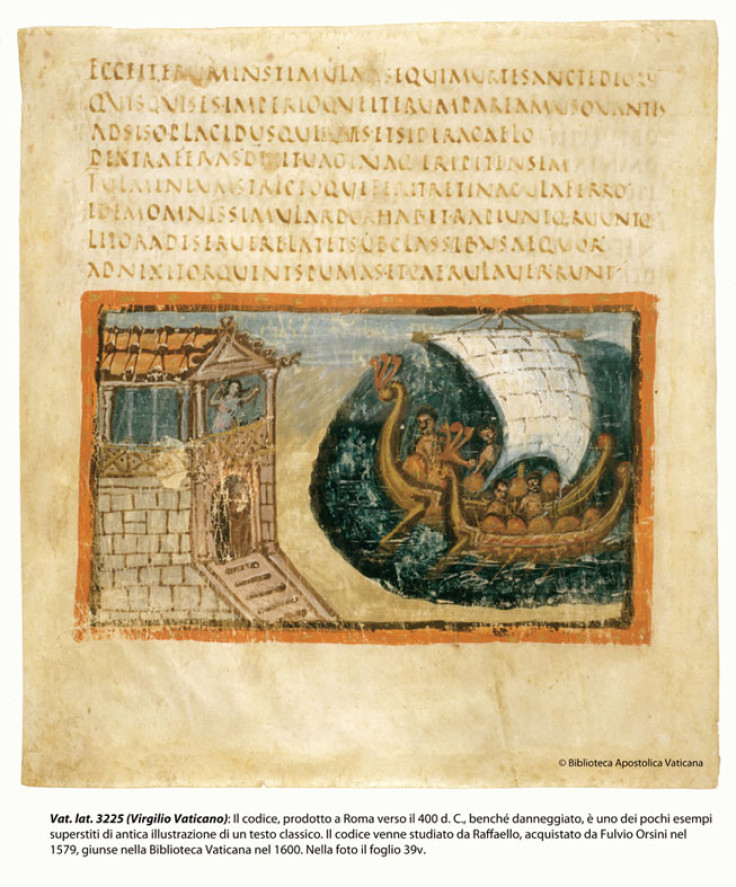 ECCEITERUMINSTIMULATSEQUIMURTESANCTEDEO
QUISQUISESIMPERIOQUEITERUMPAREAMUSOVANTIS
ADSISOPLACIDUSQUE ETSIDERACAELO
DEXTRAFERAS ERIPITENSEM
FULMINEUMSTRICTOQUEFERITRETINACULAFERRO
IDEMOMNISSIMULARDORHABETRAPIUNTQ·RUUNTQ
LITORADESERUERELATETSUBCLASSIBUSAEQUOR
ADNIXITORQUENTSPUMASETCAERULAVERRUNT
© Biblioteca Apostolica Vaticana
Vat. lat. 3225 (Virgilio Vaticano): Il codice, prodotto a Roma verso il 400 d. C., benché danneggiato, è uno dei pochi esempi
superstiti di antica illustrazione di un testo classico. Il codice venne studiato da Raffaello, acquistato da Fulvio Orsini nel
1579, giunse nella Biblioteca Vaticana nel 1600. Nella foto il foglio 39v.